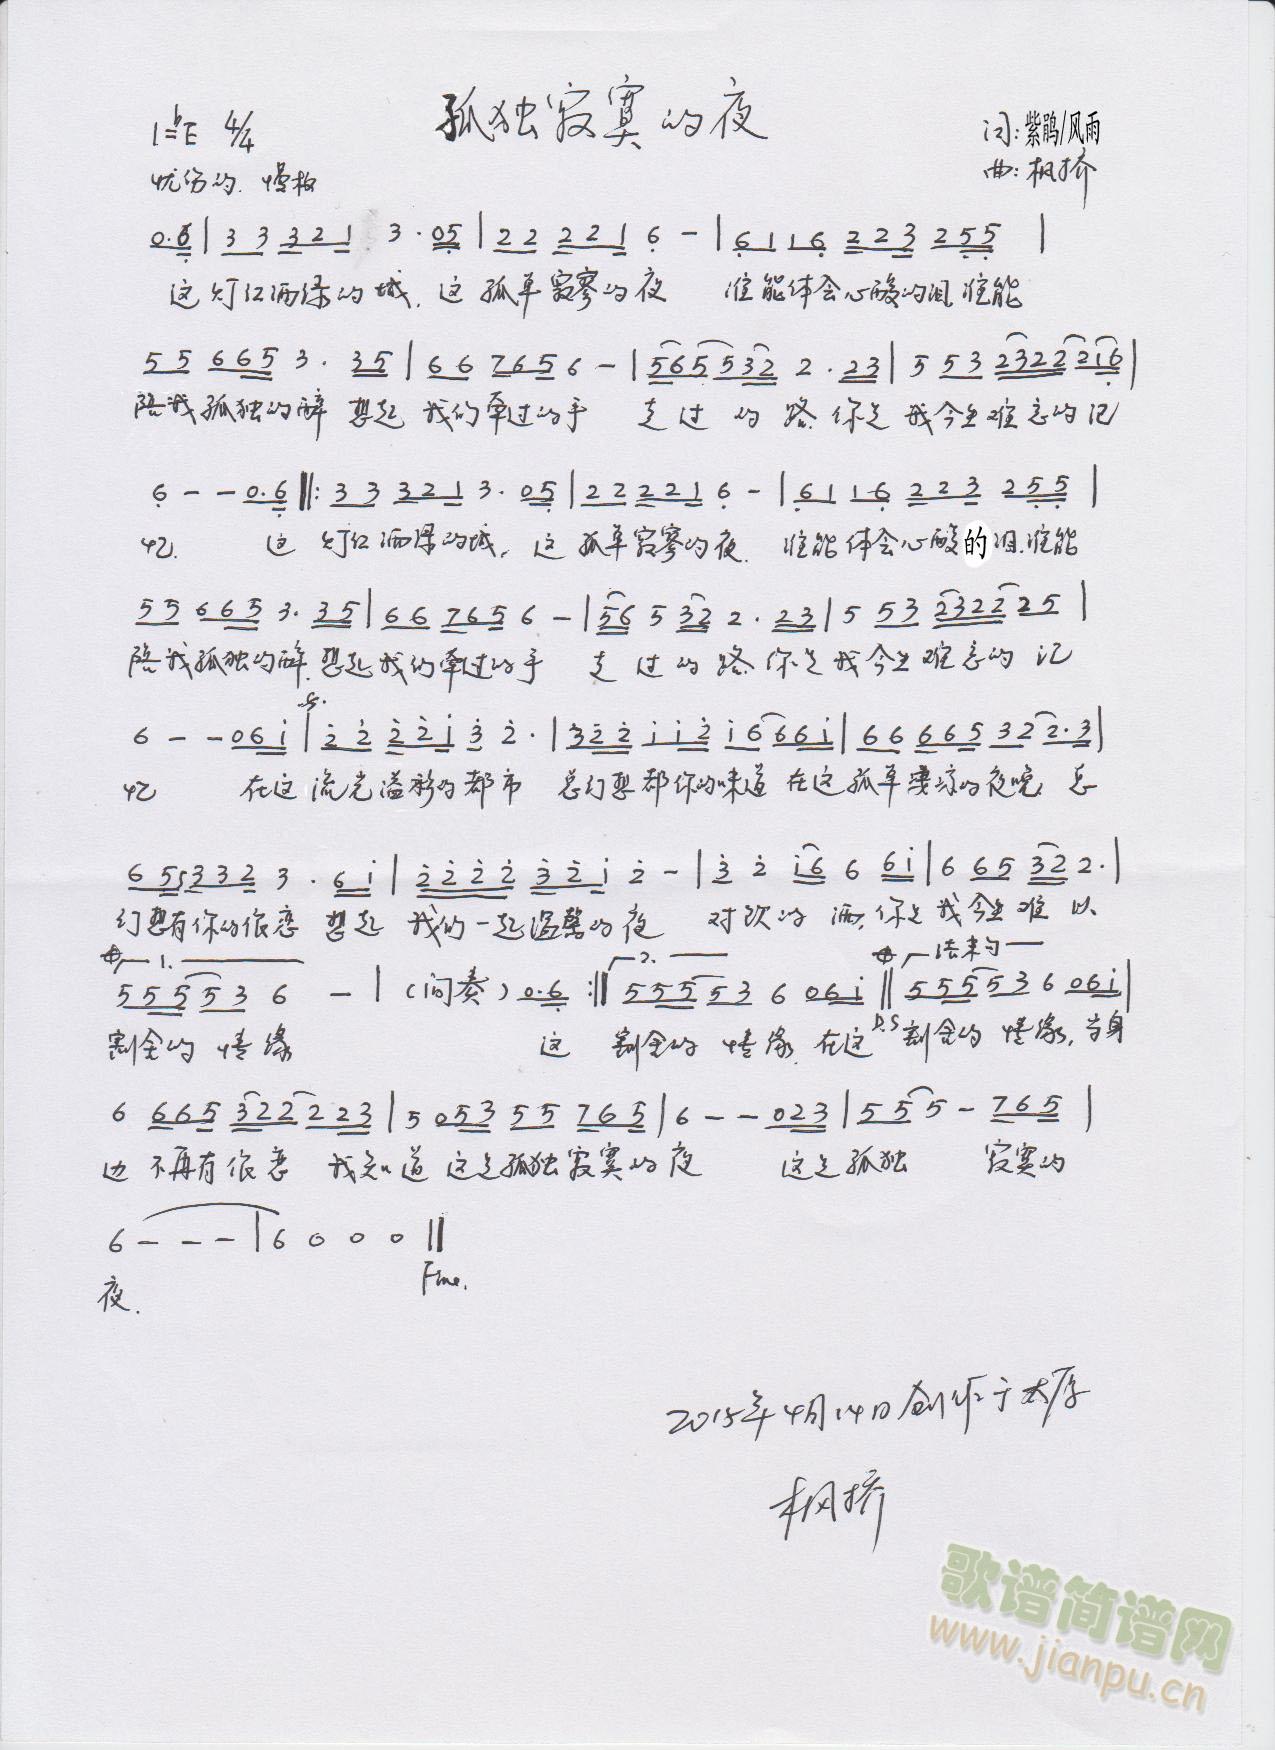 孤独寂寞的夜
1=♭E 4/4
词:紫鹃/风雨
忧伤的.慢板
曲:枫桥
0.6|33 3321 3.05|22 2221 6-|6116 223 255|
这灯红酒绿的城,这孤单寂寥的夜 谁能体会心酸的泪,谁能
55 665 3.35|66 765 6-|565532 2.23|5 53 2322216|
陪我孤独的醉 想起我们牵过的手 走过的路.你是我今生难忘的记
6--0.6‖:33 3321 3.05|22 2221 6-|6116 223 255|
忆. 这灯红酒绿的城,这孤单寂寥的夜.谁能体会心酸的泪.谁能
55 665 3.35|66 765 6-|56 5 32 2.23|5 53 2322 25|
陪我孤独的醉.想起我们牵过的手 走过的路.你是我今生难忘的记
6--061|22 2213 2.|322112 16661|66 665 322.3|
忆 在这流光溢彩的都市 总幻想都你的味道 在这孤单凄凉的夜晚.总
655332 3.61|2222 321 2-|3 2 16 6 61|6 65 322.|
幻想有你的依恋 想起我们一起温馨的夜 对饮的酒,你是我今生难以
1. 2. 结束句
555536-|(间奏)0.6:‖55553 6 061‖55553 6 061|
D.S
割舍的情缘 这 割舍的情缘.在这 割舍的情缘,当身
6 665 322223|5 053 55 765|6--023|55 5-765|
边不再有依恋 我知道这是孤独寂寞的夜 这是孤独 寂寞的
6---|6 0 0 0‖
夜. Fine.
2015年4月14日创作于太原
枫桥
歌谱简谱网
www.jianpu.cn